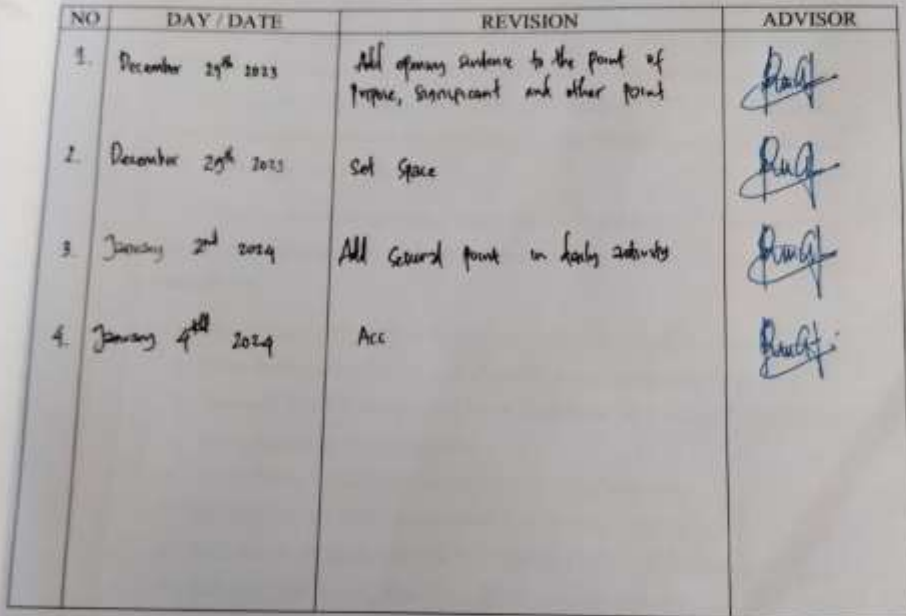 NO DAY / DATE REVISION ADVISOR
1. December 29th 2023 Add opening sentence to the point of
Purpose, Significant and other point
2. December 29th 2023 Set Space
3. January 2nd 2024 Add several point in daily activity
4. January 4th 2024 Acc